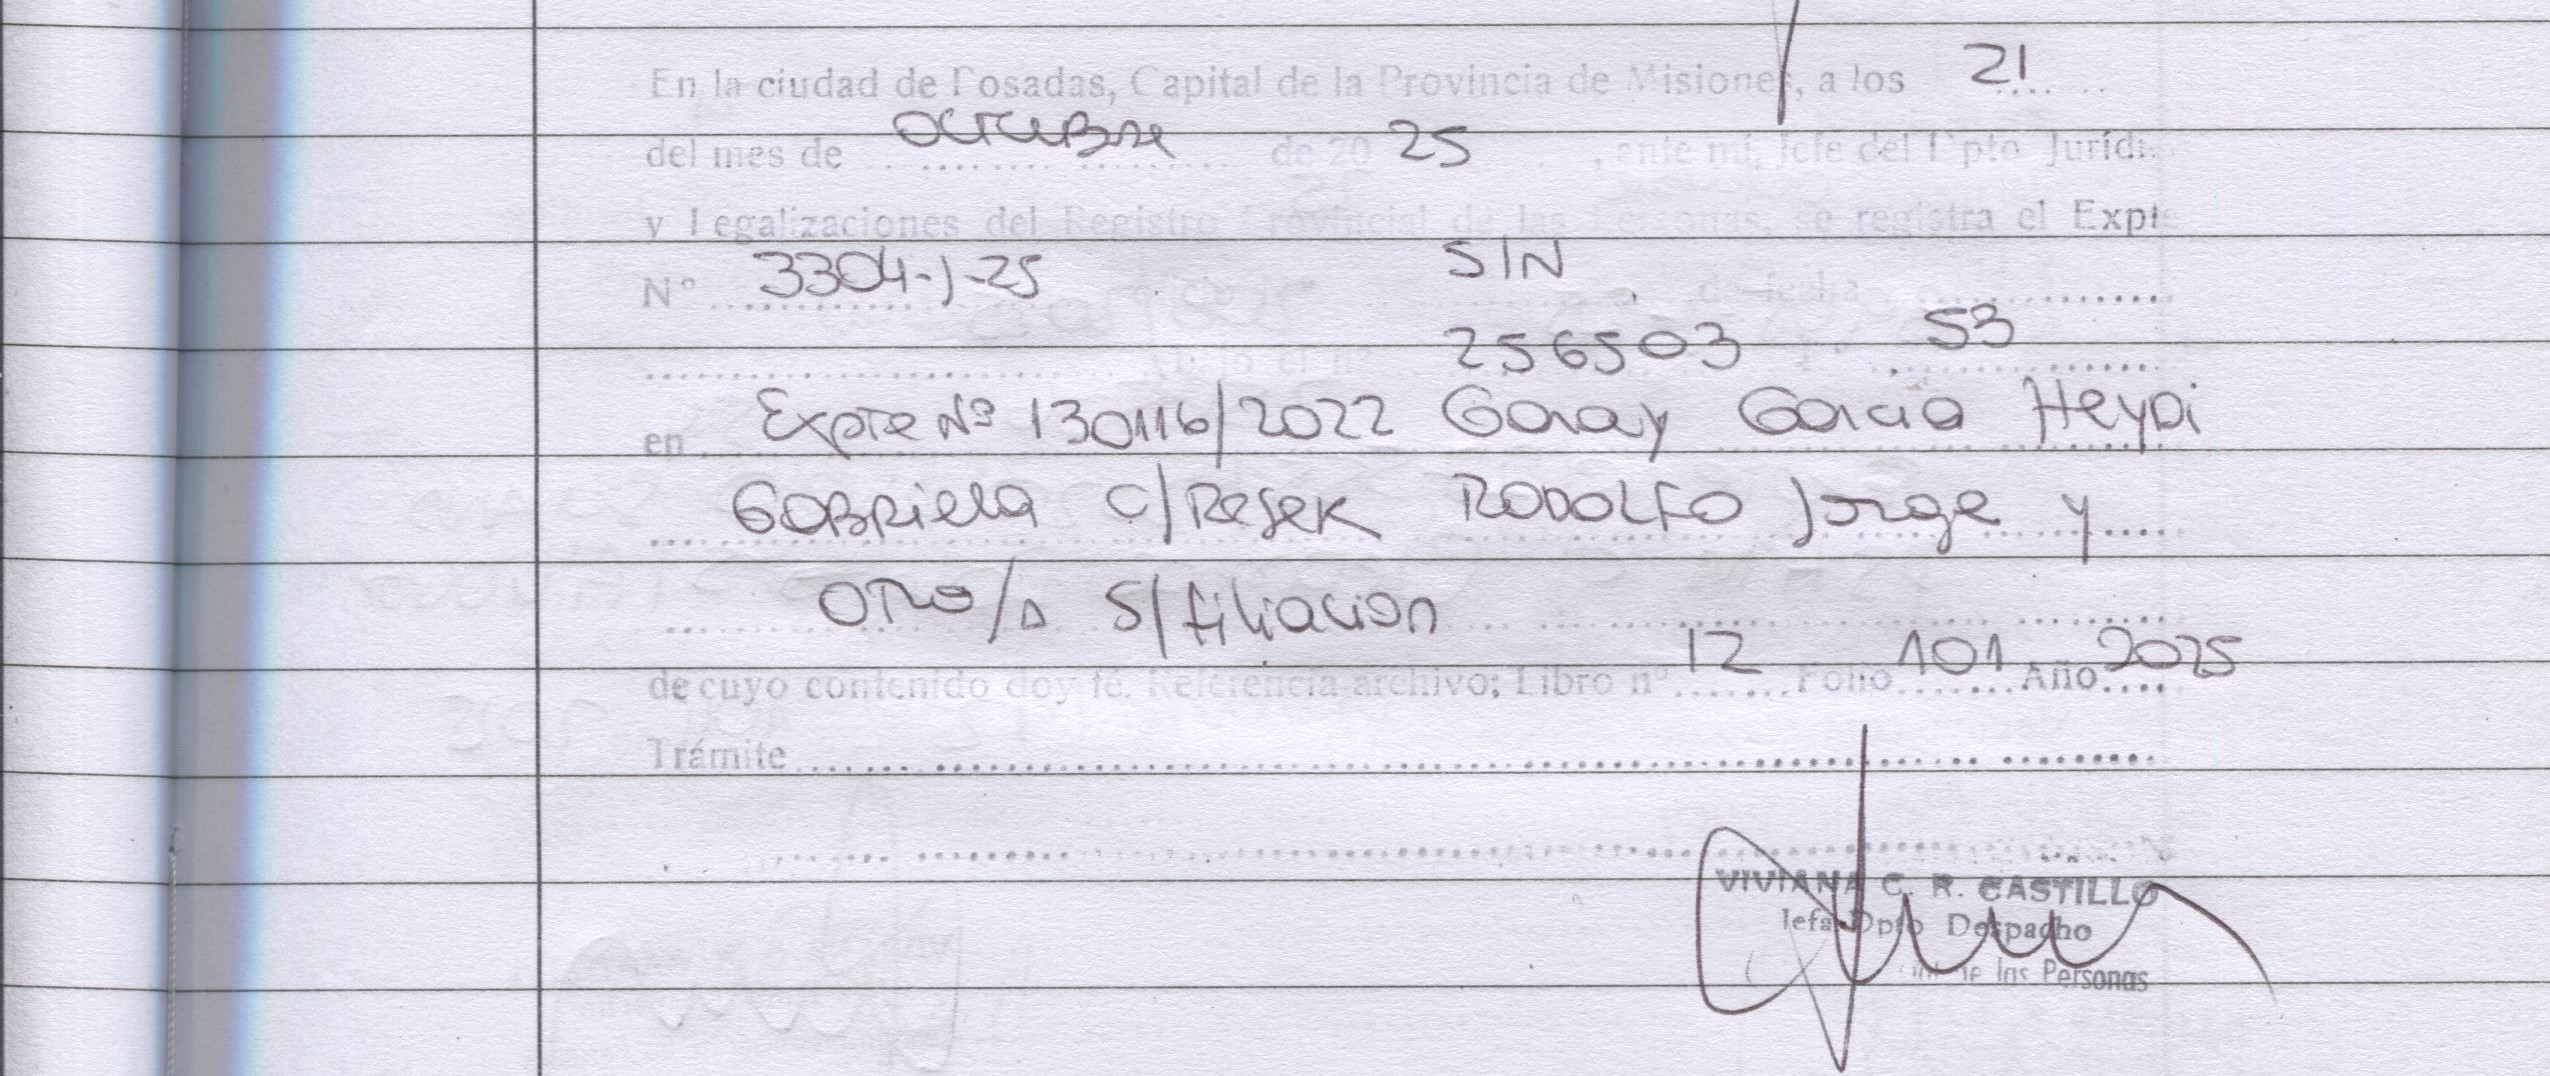 En la ciudad de Posadas, Capital de la Provincia de Misiones, a los 21
del mes de octubre de 20 25, ante mí, Jefe del Dpto Jurídi
y Legalizaciones del Registro Provincial de las Personas, se registra el Expte
Nº 3304-J-25 oficio nº S/N de fecha
bajo el nº 256503 Fº 53
en Expte Nº 130116/2022 Garay Garcia Heydi
Gabriela c/ Resek Rodolfo Jorge y
otro/a s/ filiacion
de cuyo contenido doy fé. Referencia archivo; Libro nº 12 Folio 101 Año 2025
Trámite
VIVIANA C. R. CASTILLO
Jefa Dpto Despacho
de las Personas